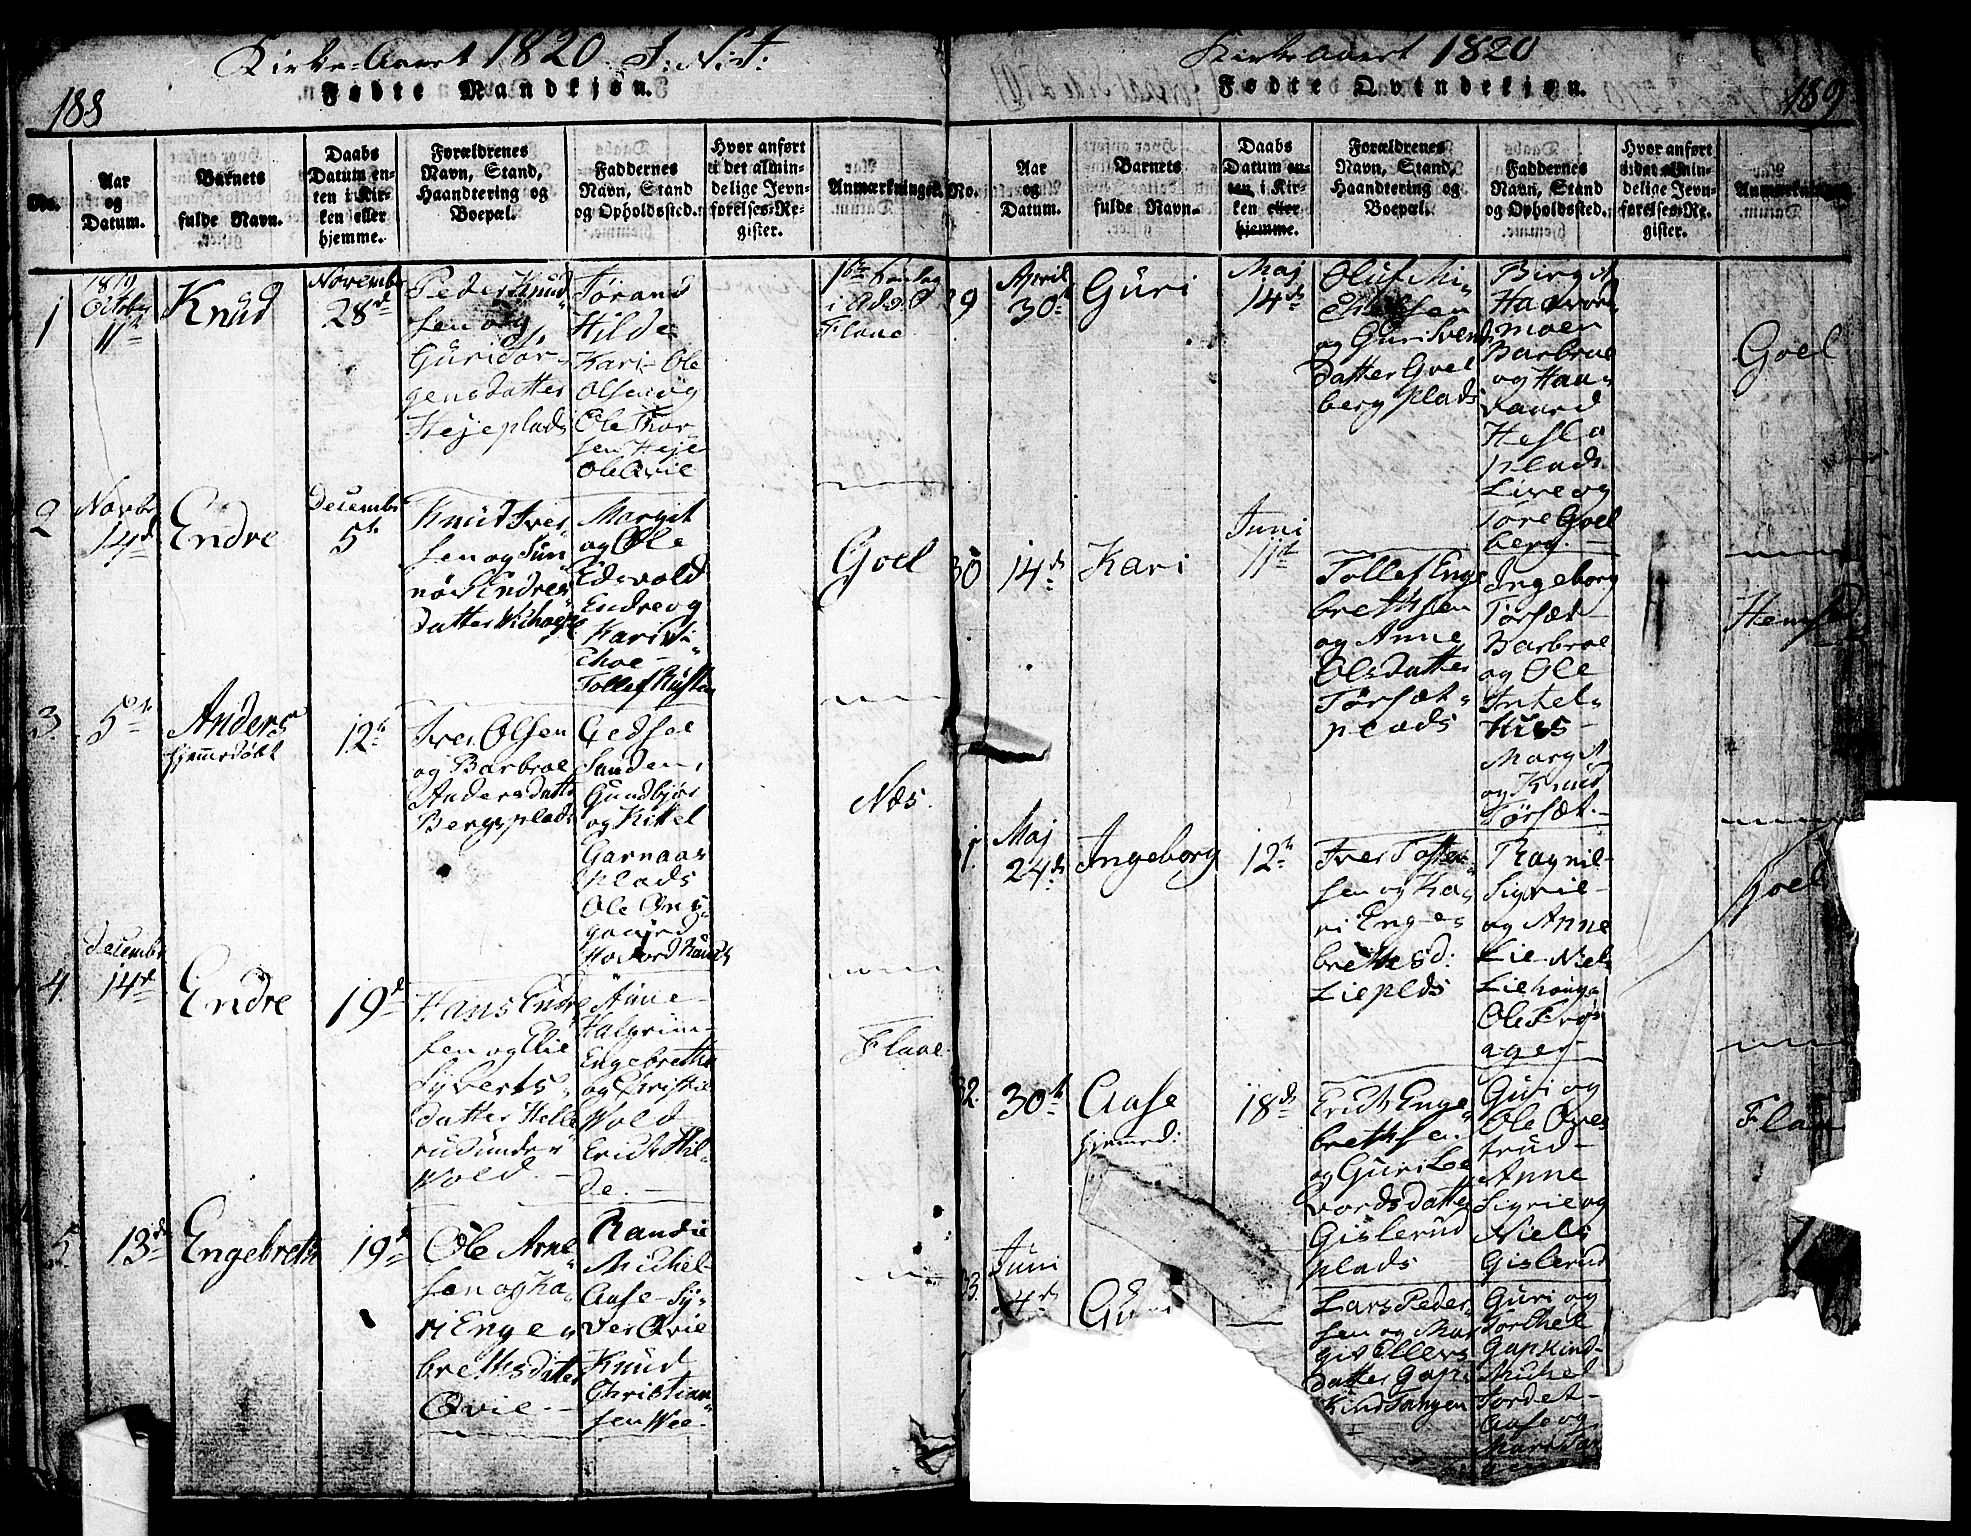 Kirke-Aaret 1820. I: N: I:
188
Fødte Mandkjøn.
No.
Aar og Datum.
Barnets fulde Navn.
Daabs Datum enten i Kirken eller hjemme.
Forældrenes Navn, Stand, Haandtering og Boepæl.
Faddernes Navn, Stand og Opholdssted.
Hvor anført i det almindelige Jevnførelses-Register.
Anmærkninger.
1
1819
October
11te
Knud
Novembr
28d
Peder Knud
sen og
Guri Jør
gensdatter
Hejeplads
Tørand
Hilde
Kari - Ole
Olsen og
Ole Thor
sen Heje
Ole Qvie
1ste Søndag
i Adv.
Flaae
2
Novbr
14d
Endre
Decembr
5t
Knud Iver
sen og Sün
nøv Endres
datter
Margit
og Ole
Edsvold
Endre og
Kari
Tollef
Goel
3.
5te
Anders
hjemmedøbt
12te
Iver Olsen
og Barbroe
Andersdatter
Bergsplads
Gedsel
Sanden,
Gundbjør
og Kittel
Garnaas
plads
Ole
gaard
Næs.
4.
Decembr
14de
Endre
19d
Hans Endre
sen og Elie
Syverts
datter Helle
rud under
Wold.
Anne
Halgrim
Engebreth
og Christie
Wold
Erich Hil
de.
Flaae
5.
13d
Engebreth
19d
Ole Arne
sen og Ka
ri Enge
brethsdatter
Qvie
Randie
Michel
Aase - Sy
ver Qvie
Knud
Christian
sen Wee
Kirke Aaret 1820
189
Fødte Qvindekjøn.
No.
Aar og Datum.
Barnets fulde Navn.
Daabs Datum enten i Kirken eller hjemme.
Forældrenes Navn, Stand, Haandtering og Boepæl.
Faddernes Navn, Stand og Opholdssted.
Hvor anført i det almindelige Jevnførelses-Register.
Anmærkninger
29
April
30t
Guri
Maj
14de
Oluf Mi
chelsen
og Guri Svends
datter Goel
berg plads
Birgit
Haavor
moen
Barbroe
og Haa
vaard
Hesla
plads
Live og
Tore Goel
berg.
Goel
30
14de
Kari
Juni
11te
Tollef Enge
brethsen
og Anne
Olsdatter
Tørsæt
plads
Ingeborg
Tørsæt
Barbroe
og Ole
Intel
Huus
Margit
og Knud
Tørsæt.
1.
Maj
24de
Ingeborg
12te
Iver Tosten
sen og Ka
ri Enge
brethsd:
Liepleds
Ragnil
Sigrie
og Anne
Lie - Niels
Liehouga
Ole
ager
Goel
32.
30te
Aase
hjemmed:
18de
Erich Enge
brethsen
og Guri Lee
vordsdatter
Gislerud
plads
Guri og
Ole
trud
Anne
Sigrie og
Niels
Gislerud
Flaae
33.
Juni
4de
Guri
Lars Peder
sen og Mar
git Ellers
datter Gap
Kind Tangen
Guri og
Torchel
Gapkind
Michel
Jordet
Aase og